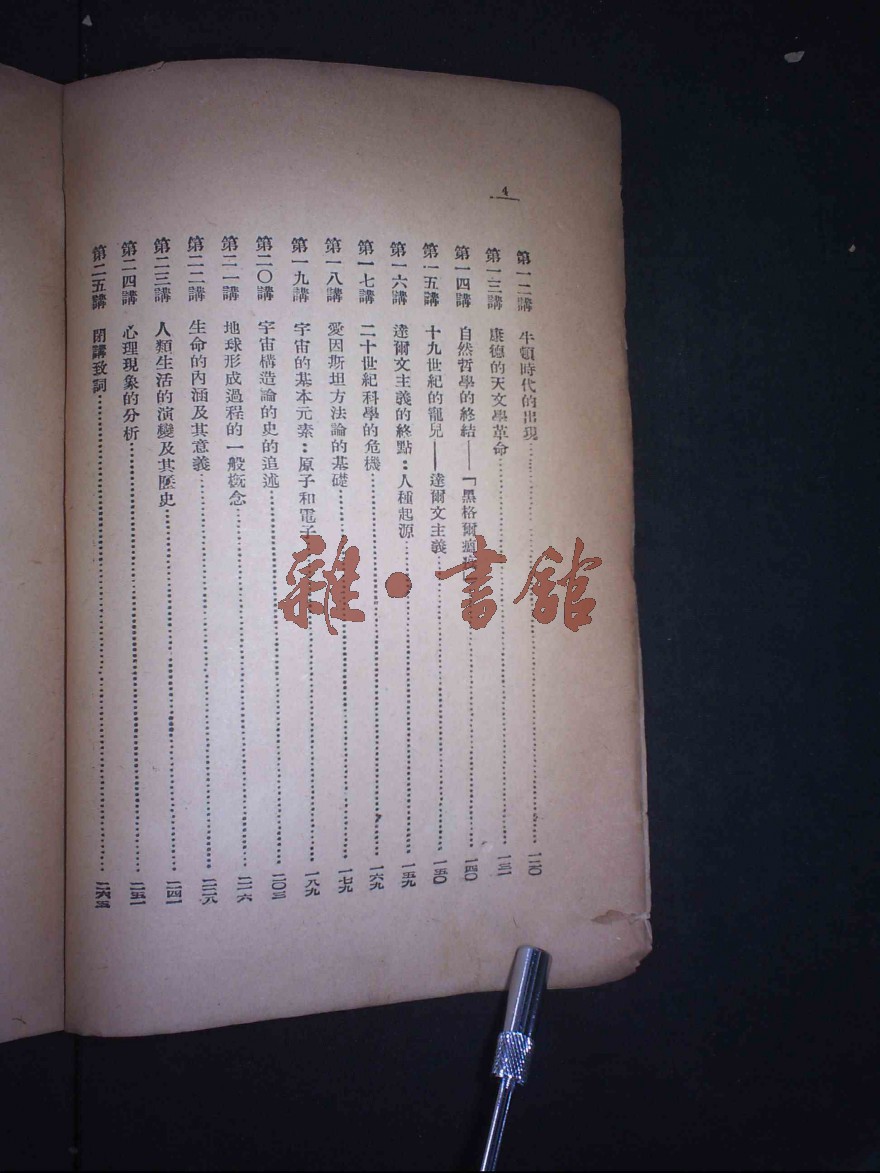 4
第一二講 牛頓時代的出現………一二〇
第一三講 康德的天文學革命………一三一
第一四講 自然哲學的終結——「黑格爾………一四〇
第一五講 十九世紀的寵兒——達爾文主義………一五〇
第一六講 達爾文主義的終點：人種起源………一五九
第一七講 二十世紀科學的危機………一六九
第一八講 愛因斯坦方法論的基礎………一七九
第一九講 宇宙的基本元素：原子和電子………一八九
第二〇講 宇宙構造論的史的追述………二〇三
第二一講 地球形成過程的一般概念………二一六
第二二講 生命的內涵及其意義………二二八
第二三講 人類生活的演變及其歷史………二四一
第二四講 心理現象的分析………二五一
第二五講 閉講致詞………二六五
雜·書館